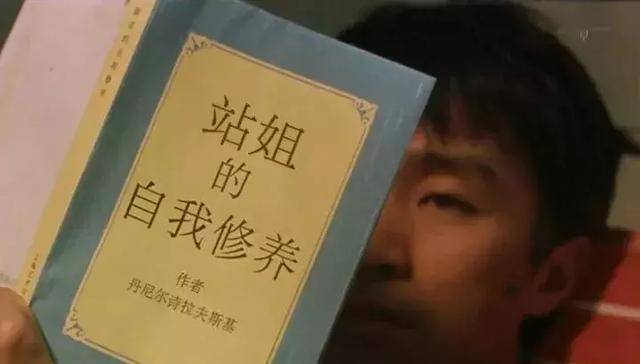 站姐
的
自我修养
作者
丹尼尔诗拉夫斯基